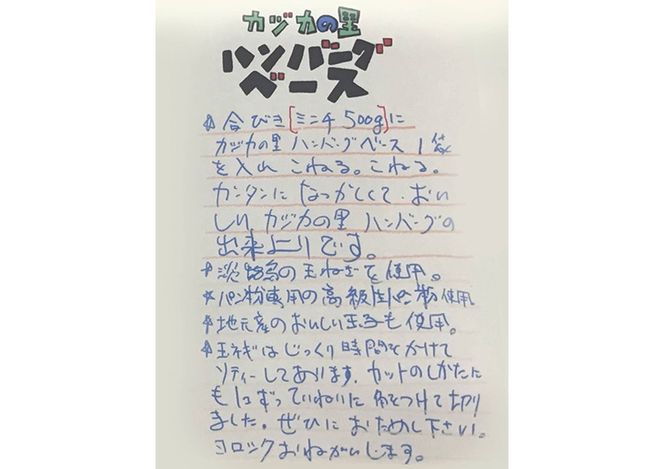 カヅカの里
ハンバーグ
ベース
☆合びき[ミンチ500g]に
カヅカの里ハンバーグベース1袋
を入れこねる。こねる。
カンタンになつかしくて、おい
しいカヅカの里ハンバーグの
出来上りです。
☆淡路島の玉ねぎを使用。
☆パン粉専用の高級生パン粉使用
☆地元産のおいしい玉子も使用。
☆玉ネギはじっくり時間をかけて
ソティーしております。カットのしかたに
もはずっていねいに気をつけて切り
ました。ぜひにおためし下さい。
ヨロシクおねがいします。